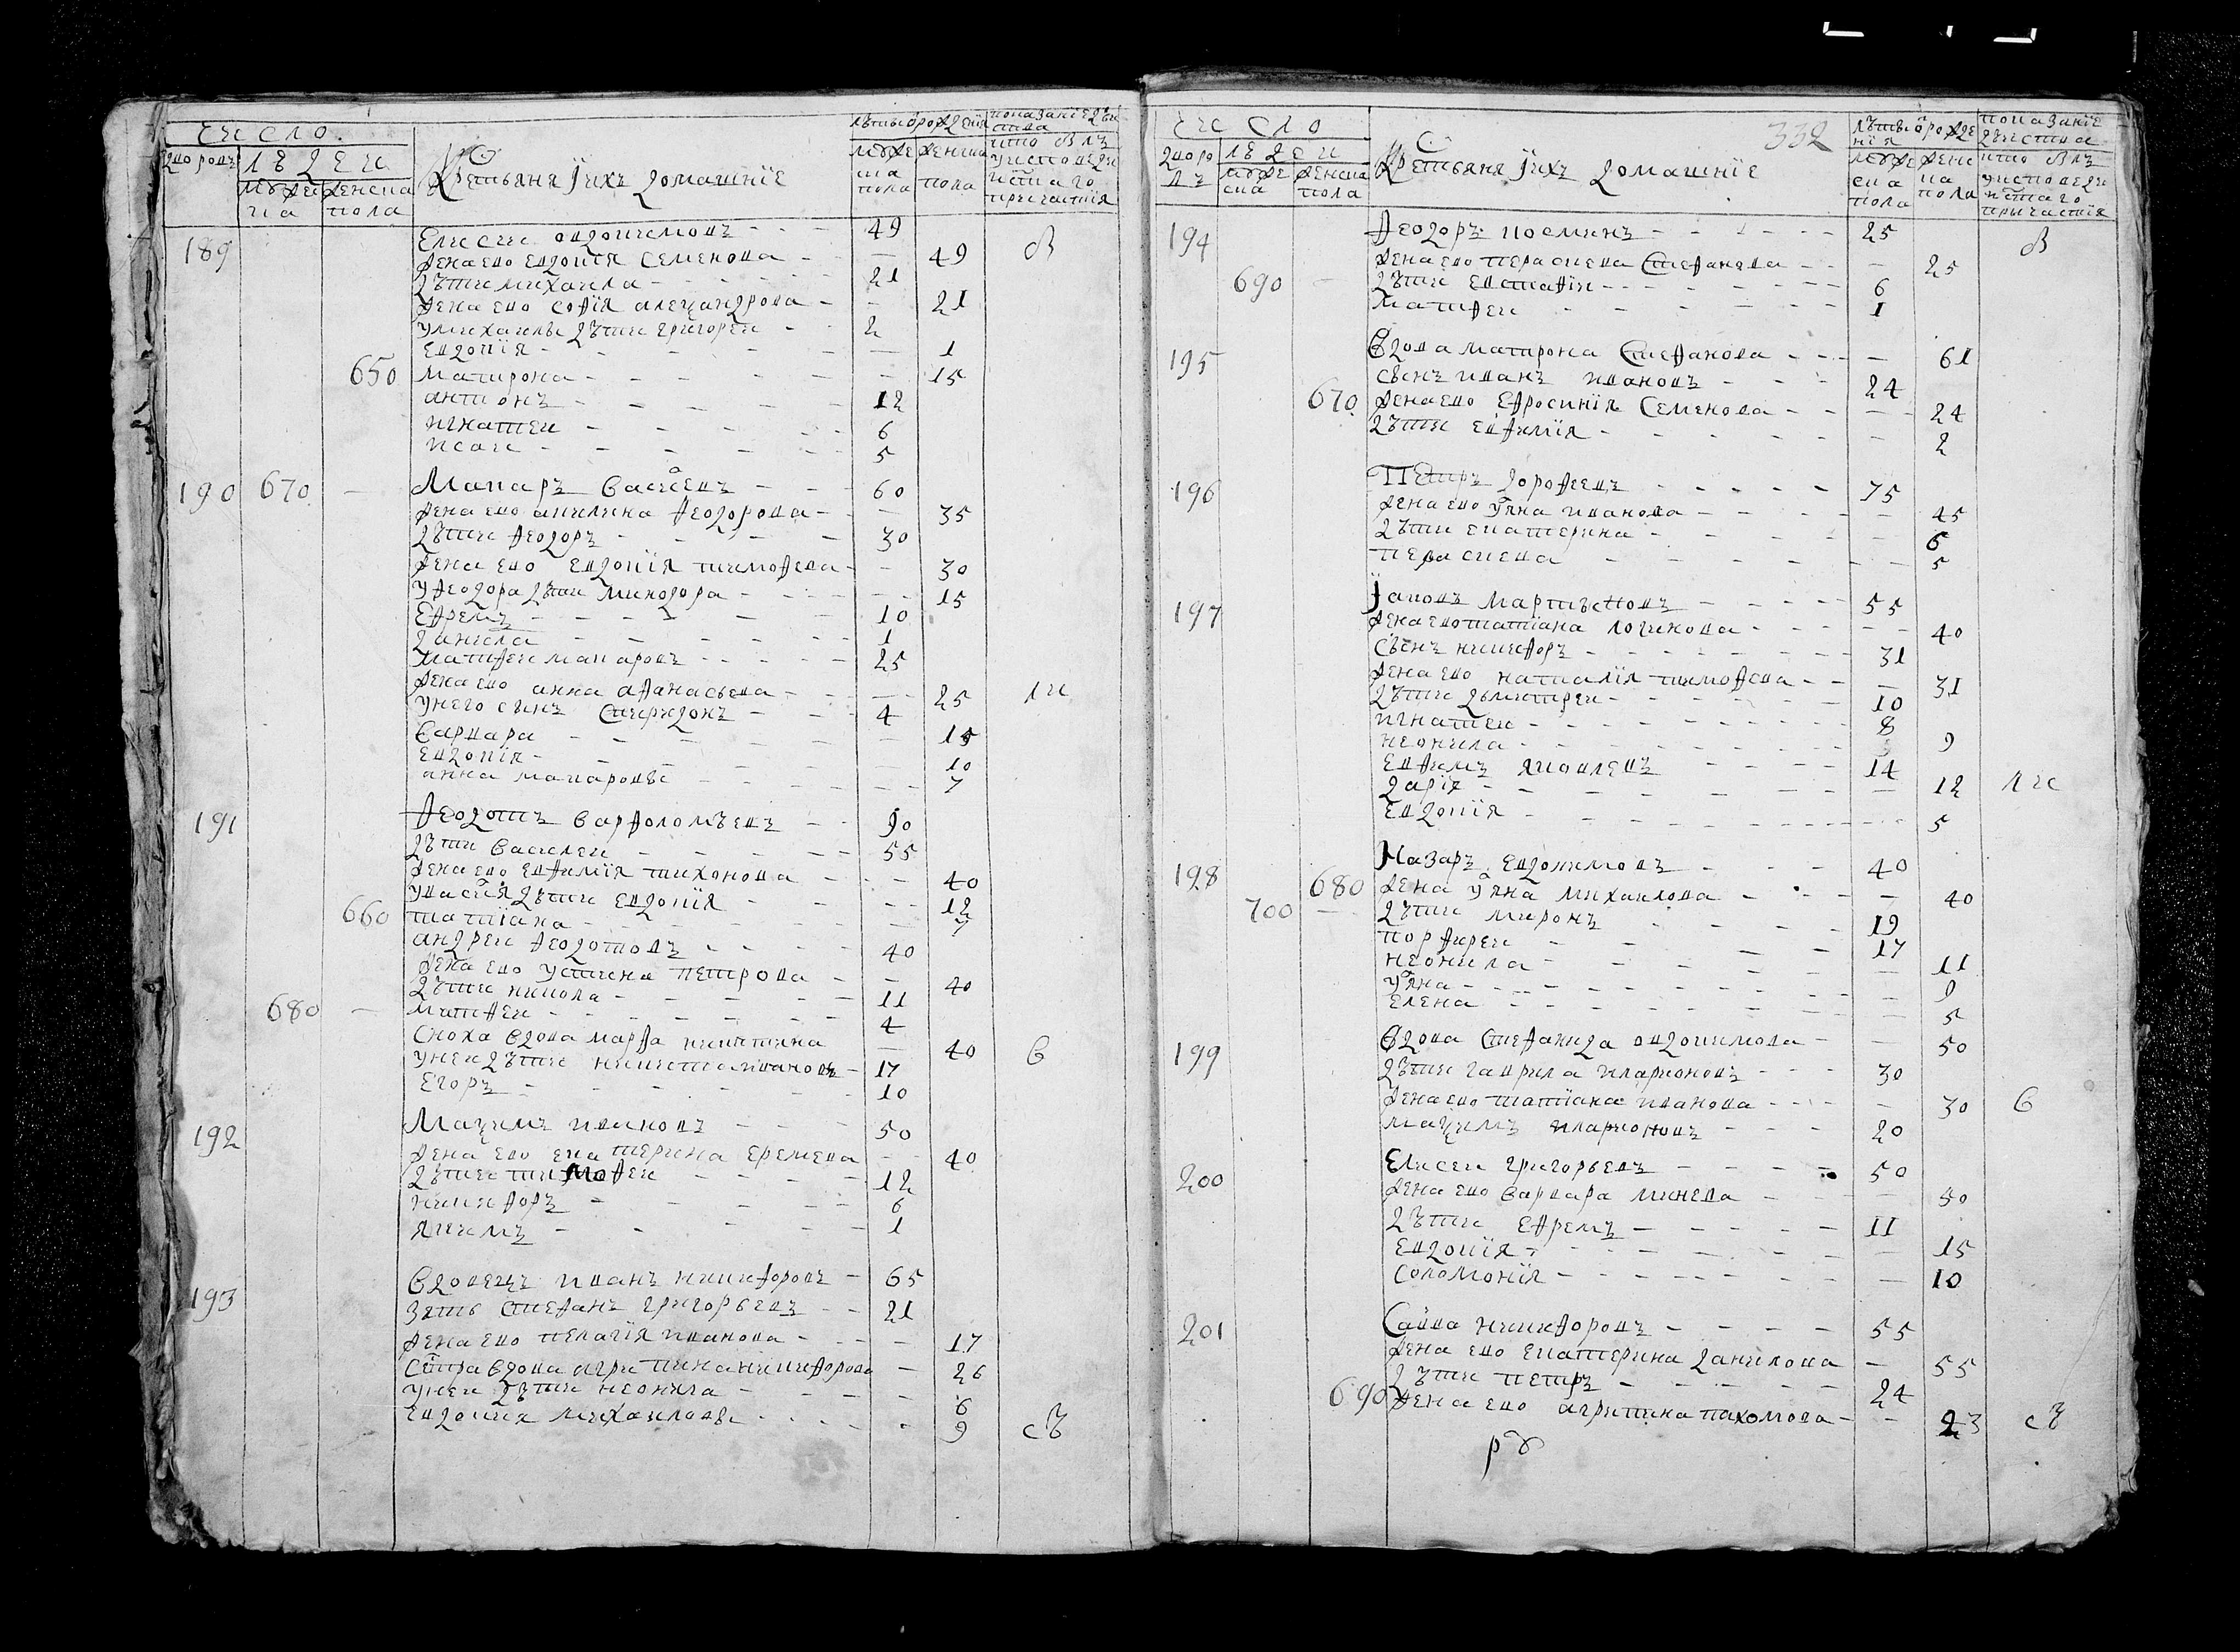 число
дворовъ людеи
мужеска женска пола
Крестьяня и ихъ домашние
лѣты рождения
мужеска пола женска пола
показание дѣиства кто былъ у исповеди и стаго причастия
189 Елисеи овдокимовъ - - - 49
жена ево евдокия Семенова - - 49 В
дѣти михаила - - - 21
жена ево софия алеѯандрова - - 21
у михаилы дѣти григореи - - 2
евдокия - - - 1
650 матирона - - - 15
антионъ - - - 12
игнатеи - - - 6
исаи - - - 5
190 670 - Макаръ Васильевъ - - 60
жена ево акилина Ѳеодорова - - 35
дѣти Ѳеодоръ - - - 30
жена ево евдокия тимоѳева - - 30
у Ѳеодора дѣти минодора - - 15
Ефремъ - - - 10
данила - - - 1
матѳеи макаровъ - - - 25
жена ево анна аѳанасьева - - 25 ли
у него сынъ Спиридонъ - - 4
Варвара - - - 15
евдокия - - - 10
анна макаровы - - - 7
191 Ѳеодотъ Варѳоломѣевъ - - 90
дѣти Василеи - - - 55
жена ево евѳимия тихонова - - 40
у васия дѣти евдокия - - 12
660 татиана - - - 7
андреи Ѳеодотовъ - - - 40
жена ево устина петрова - - 40
дѣти никола - - - 11
680 - матѳеи - - - 4
сноха вдова марѳа никитина - 40 В
у неи дѣти никита ивановъ - 17
Егоръ - - - 10
192 Маѯимъ ивановъ - - - 50
жена ево екатерина еремева - - 40
дѣти тимоѳеи - - - 12
никиѳоръ - - - 6
якимъ - - - 1
193 Вдовецъ иванъ никиѳоровъ - 65
зять Стеѳанъ григорьевъ - - 21
жена ево пелагия иванова - - 17
Сестра вдова агрипина никиѳорова - 26
у неи дѣти неонила - - 6
евдокия михаиловы - - - 9 сЪ
332
число
дворовъ людеи
мужеска женска пола
Крестьяня и ихъ домашние
лѣты рождения
мужеска пола женска пола
показание дѣиства кто былъ у исповеди и стаго причастия
194 Ѳеодоръ косминъ - - - 25 В
жена ево параскева Стеѳанова - - 25
690 - дѣти евстаѳии - - - 6
матѳеи - - - 1
195 Вдова матирона Стеѳанова - - 61
сынъ иванъ ивановъ - - - 24
670 жена ево еѳросиния Семенова - - 24
дѣти евѳимия - - - 2
196 Петръ дороѳеевъ - - - 75
жена ево уяна иванова - - - 45
дѣти екатерина - - - 6
параскева - - - 5
197 Иаковъ мартыновъ - - - 55
жена ево татиана логинова - - 40
сынъ никиѳоръ - - - 31
жена ево наталия тимоѳева - - 31
дѣти дъмитреи - - - 10
игнатеи - - - 8
неонила - - - 9
евѳимъ яковлевъ - - - 14
дария - - - 12 ли
евдокия - - - 5
198 Назаръ евдокимовъ - - - 40
680 жена уяна михаилова - - - 40
700 - дѣти миронъ - - - 19
порѳиреи - - - 17
неонила - - - 11
уяна - - - 9
елена - - - 5
199 Вдова Стеѳанида овдокимова - - 50
дѣти гаврила иларионовъ - - 30
жена ево татиана иванова - - 30 В
маѯимъ иларионовъ - - - 20
200 Елисеи григорьевъ - - - 50
жена ево варвара минева - - 50
дѣти Еѳремъ - - - 11
евдокия - - - 15
соломония - - - 10
201 Савва никиѳоровъ - - - 55
жена ево екатерина данилова - 55
дѣти петръ - - - 24
690 жена ево агрипина пахомова - - 23 сЪ